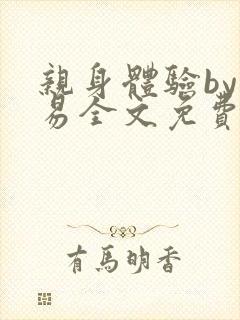 親身體驗by
易全文免費
有馬明香